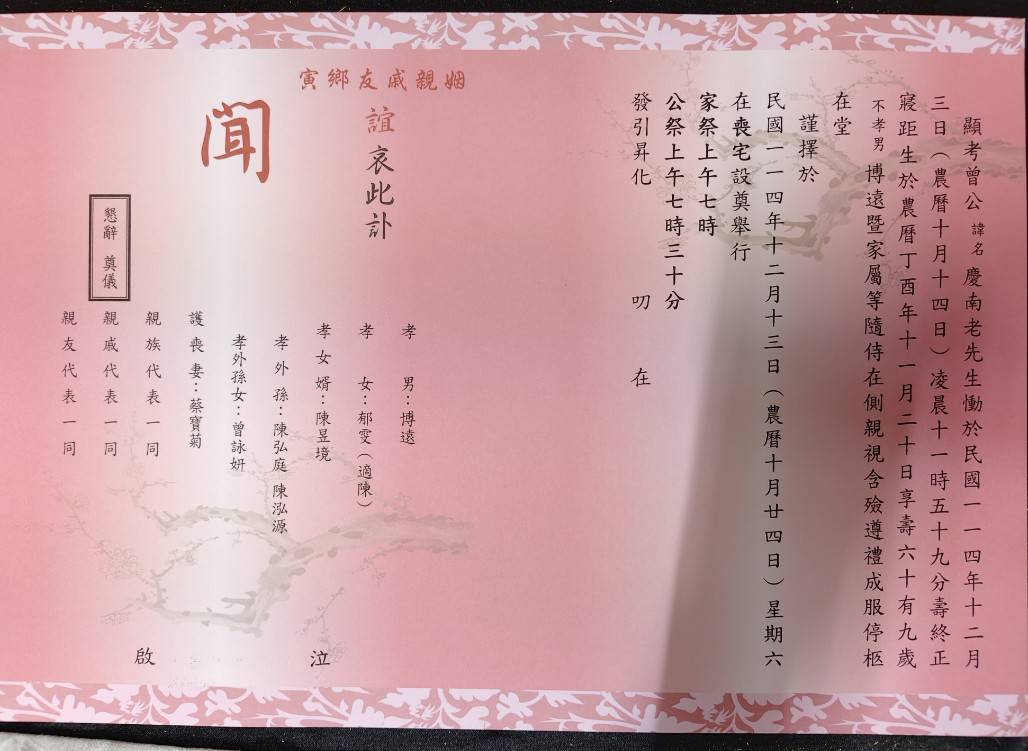 顯考曾公諱名慶南老先生慟於民國一一四年十二月
三日(農曆十月十四日)凌晨十一時五十九分壽終正
寢距生於農曆丁酉年十一月二十日享壽六十有九歲
不孝男博遠暨家屬等隨侍在側親視含殮遵禮成服停柩
在堂
謹擇於
民國一一四年十二月十三日(農曆十月廿四日)星期六
在喪宅設奠舉行
家祭上午七時
公祭上午七時三十分
發引昇化 叨 在
寅鄉友戚親姻
誼哀此訃
聞
孝 男:博遠
孝 女:郁雯(適陳)
孝女婿:陳昱境
孝外孫:陳弘庭 陳泓源
孝外孫女:曾詠妍
護喪妻:蔡寶菊
親族代表一同
親戚代表一同
親友代表一同
懇辭 奠儀
泣
啟